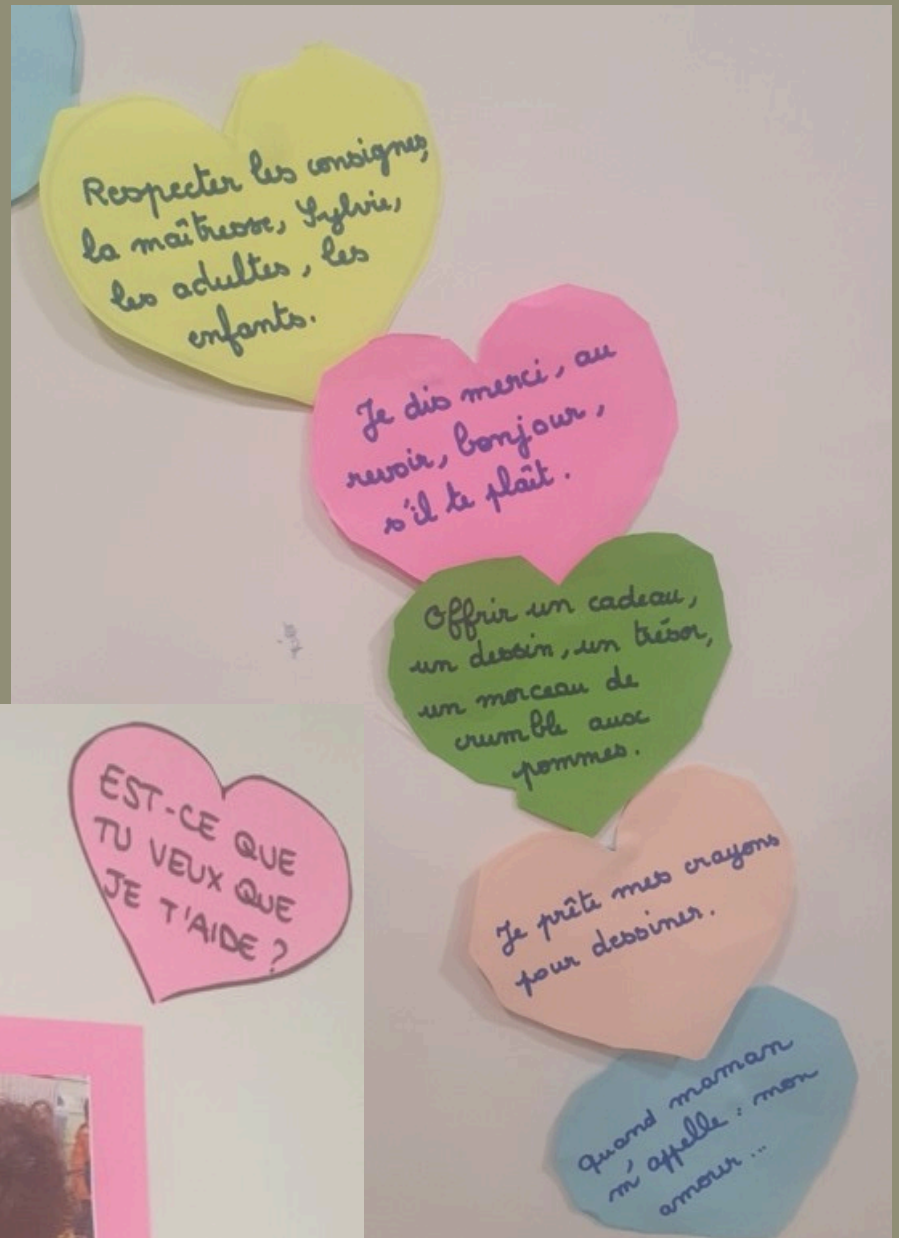 Respecter les consignes,
la maîtresse, Sylvie,
les adultes, les
enfants.
Je dis merci, au
revoir, bonjour,
s'il te plaît.
Offrir un cadeau,
un dessin, un trésor,
un morceau de
crumble aux
pommes.
Je prête mes crayons
pour dessiner.
quand maman
m'appelle : mon
amour...
EST-CE QUE
TU VEUX QUE
JE T'AIDE ?